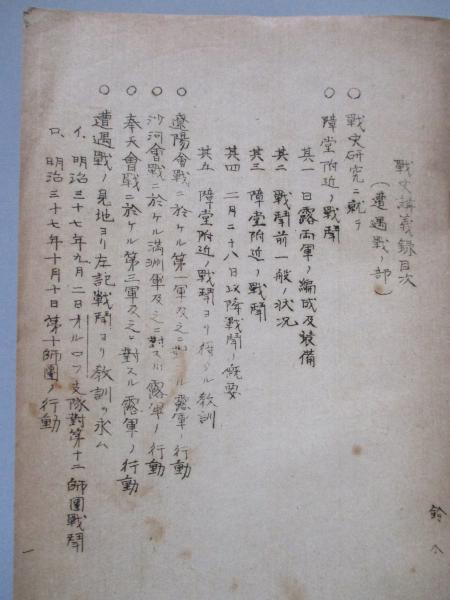 戰史講義錄目次
(遭遇戰ノ部)
○ 戰史研究ニ就テ
○ 障堂附近ノ戰鬪
其一 日露両軍ノ編成及裝備
其二 戰鬪前一般ノ状况
其三 障堂附近ノ戰鬪
其四 二月二十八日以降戰鬪ノ概要
其五 障堂附近ノ戰鬪ヨリ得タル敎訓
○ 遼陽會戰ニ於ケル第一軍及之ニ對スル露軍ノ行動
○ 沙河會戰ニ於ケル滿洲軍及之ニ對スル露軍ノ行動
○ 奉天會戰ニ於ケル第三軍及之ニ對スル露軍ノ行動
○ 遭遇戰ノ見地ヨリ左記戰鬪ヨリ敎訓ヲ求ム
イ、明治三十七年九月二日オルロフ支隊對第十二師團戰鬪
ロ、明治三十七年十月十日第十師團ノ行動
鈴木
一